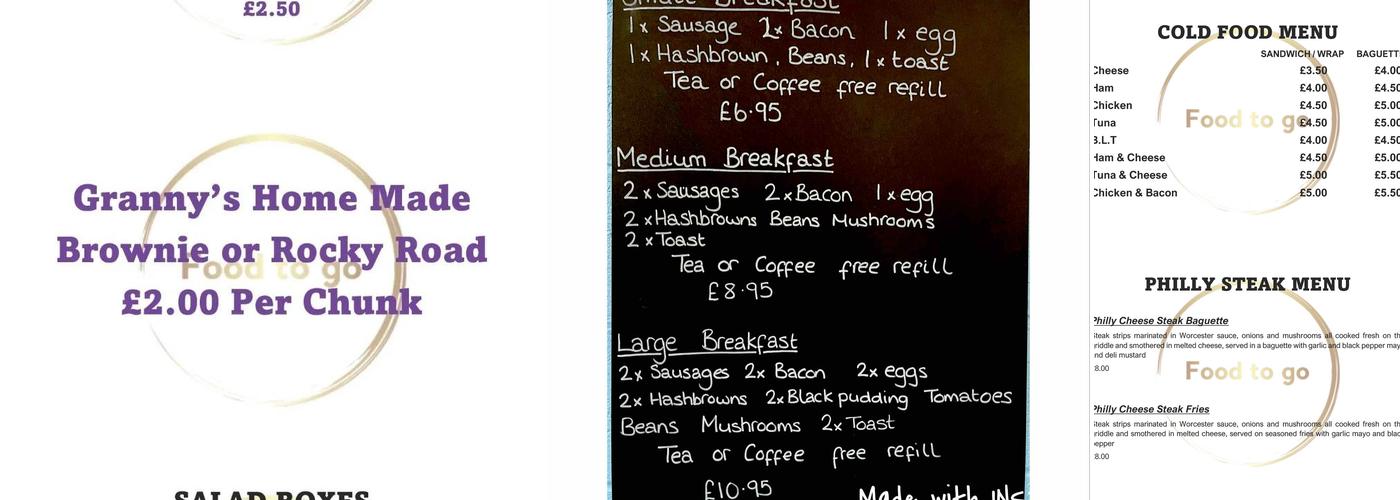 £2.50
Granny's Home Made
Brownie or Rocky Road
Food to go
£2.00 Per Chunk
SALAD BOXES
Small Breakfast
1x Sausage 2x Bacon 1x egg
1x Hashbrown, Beans, 1x toast
Tea or Coffee free refill
£6.95
Medium Breakfast
2x Sausages 2xBacon 1xegg
2xHashbrowns Beans Mushrooms
2xToast
Tea or Coffee free refill
£8.95
Large Breakfast
2x Sausages 2x Bacon 2x eggs
2x Hashbrowns 2xBlack pudding Tomatoes
Beans Mushrooms 2xToast
Tea or Coffee free refill
£10.95
Made with
COLD FOOD MENU
SANDWICH / WRAP BAGUETT
Cheese £3.50 £4.00
Ham £4.00 £4.50
Chicken £4.50 £5.00
Food to go
Tuna £4.50 £5.00
B.L.T £4.00 £4.50
Ham & Cheese £4.50 £5.00
Tuna & Cheese £5.00 £5.50
Chicken & Bacon £5.00 £5.50
PHILLY STEAK MENU
Philly Cheese Steak Baguette
teak strips marinated in Worcester sauce, onions and mushrooms all cooked fresh on th
riddle and smothered in melted cheese, served in a baguette with garlic and black pepper may
nd deli mustard
8.00
Food to go
Philly Cheese Steak Fries
teak strips marinated in Worcester sauce, onions and mushrooms all cooked fresh on th
riddle and smothered in melted cheese, served on seasoned fries with garlic mayo and blac
epper
8.00